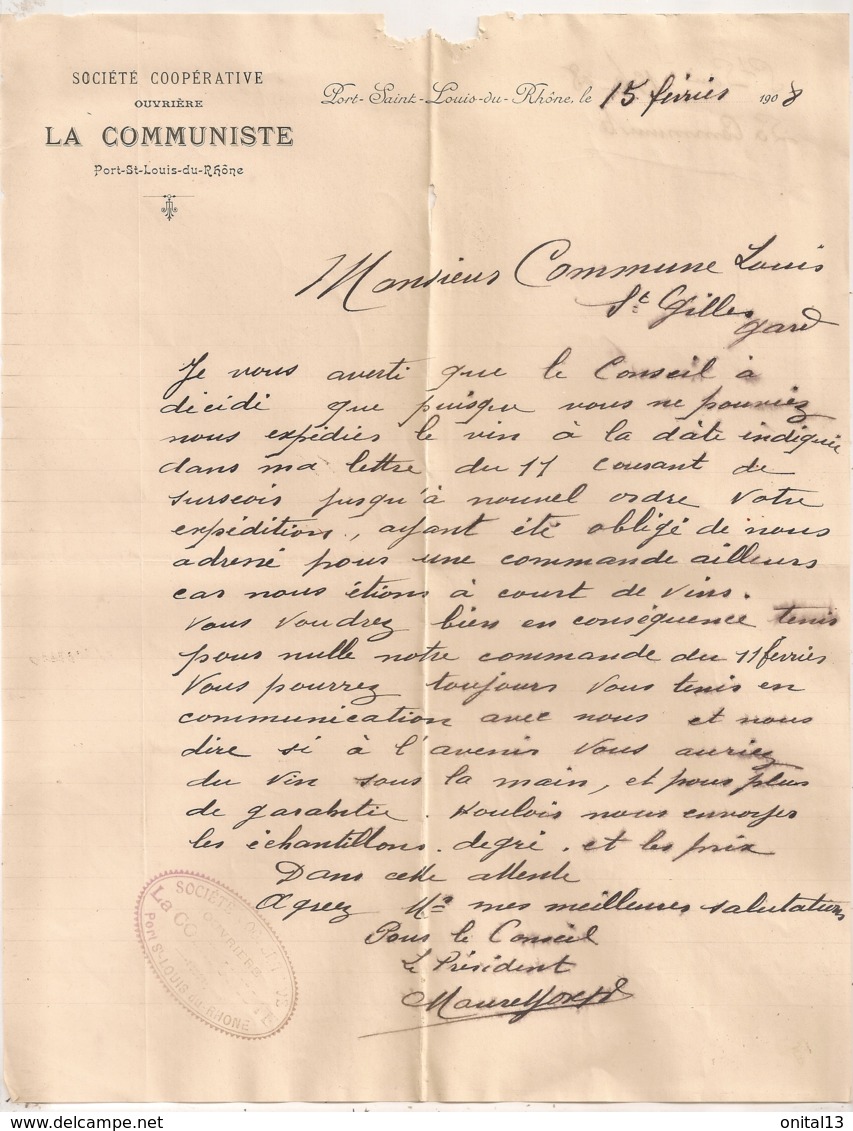 SOCIÉTÉ COOPÉRATIVE
OUVRIÈRE
LA COMMUNISTE
Port-St-Louis-du-Rhône
Port-Saint-Louis-du-Rhône, le 15 février 1908
Monsieur Commune Louis
St Gilles
Gard
Je vous averti que le Conseil à
décidé que puisque vous ne pouviez
nous expédier le vin à la dâte indiquée
dans ma lettre du 11 courant de
surseoir jusqu'à nouvel ordre votre
expédition, ayant été obligé de nous
adressé pour une commande ailleurs
car nous étions à court de vins.
Vous voudrez bien en conséquence tenir
pour nulle notre commande du 11 février
Vous pourrez toujours vous tenir en
communication avec nous et nous
dire si à l'avenir vous auriez
du vin sous la main, et pour plus
de garantie. Vouloir nous envoyer
les échantillons. degré. et les prix
Dans cette attente
Agréez Mr mes meilleures salutations
Pour le Conseil
Le Président
SOCIÉTÉ
OUVRIÈRE
LA CO
PORT ST-LOUIS-DU-RHONE
delcampe.net
onital13